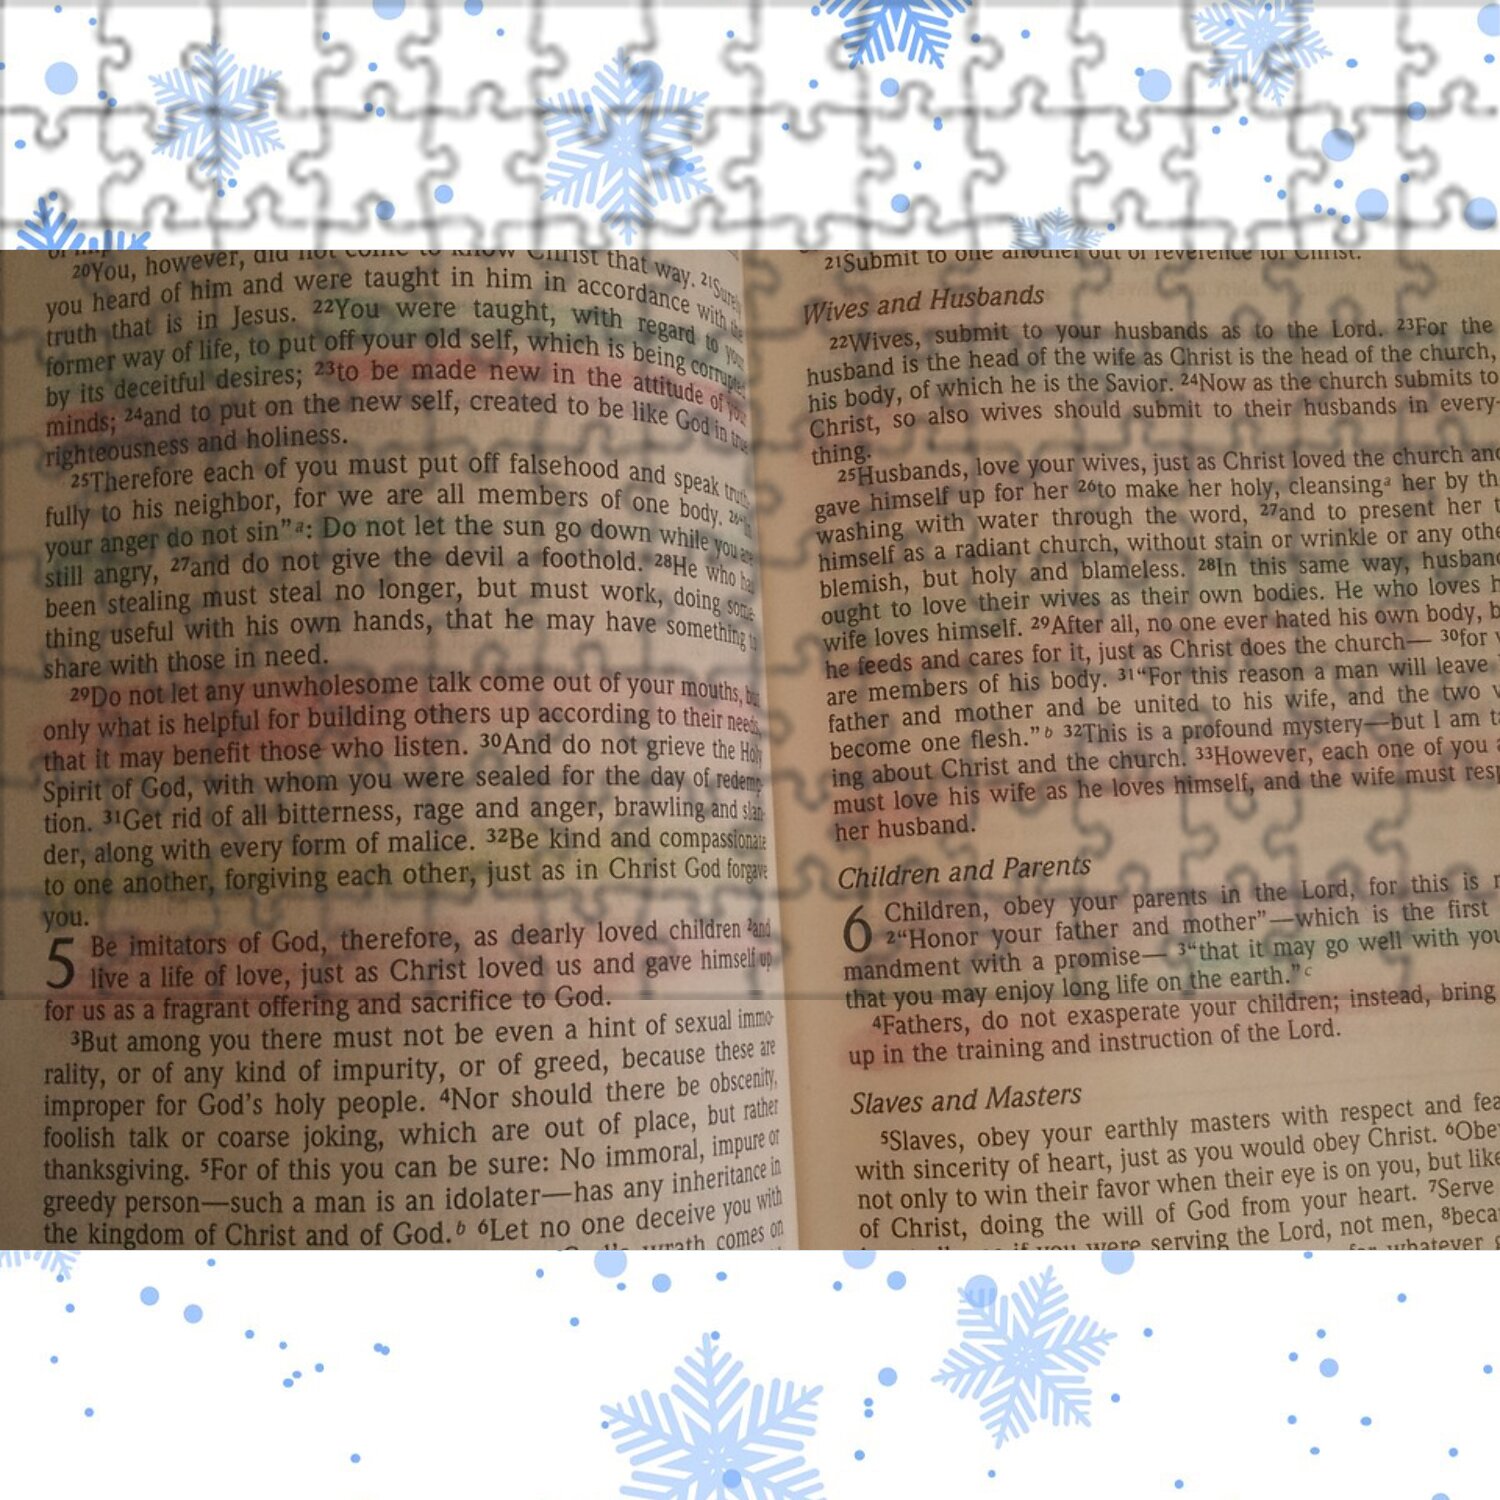 20You, however, did not come to know Christ that way. 21Surely
you heard of him and were taught in him in accordance with the
truth that is in Jesus. 22You were taught, with regard to your
former way of life, to put off your old self, which is being corrupted
by its deceitful desires; 23to be made new in the attitude of your
minds; 24and to put on the new self, created to be like God in true
righteousness and holiness.
25Therefore each of you must put off falsehood and speak truth-
fully to his neighbor, for we are all members of one body. 26“In
your anger do not sin”a: Do not let the sun go down while you are
still angry, 27and do not give the devil a foothold. 28He who has
been stealing must steal no longer, but must work, doing some-
thing useful with his own hands, that he may have something to
share with those in need.
29Do not let any unwholesome talk come out of your mouths, but
only what is helpful for building others up according to their needs,
that it may benefit those who listen. 30And do not grieve the Holy
Spirit of God, with whom you were sealed for the day of redemp-
tion. 31Get rid of all bitterness, rage and anger, brawling and slan-
der, along with every form of malice. 32Be kind and compassionate
to one another, forgiving each other, just as in Christ God forgave
you.
5 Be imitators of God, therefore, as dearly loved children 2and
live a life of love, just as Christ loved us and gave himself up
for us as a fragrant offering and sacrifice to God.
3But among you there must not be even a hint of sexual immo-
rality, or of any kind of impurity, or of greed, because these are
improper for God's holy people. 4Nor should there be obscenity,
foolish talk or coarse joking, which are out of place, but rather
thanksgiving. 5For of this you can be sure: No immoral, impure or
greedy person—such a man is an idolater—has any inheritance in
the kingdom of Christ and of God.b 6Let no one deceive you with
wrath comes on
21Submit to one another out of reverence for Christ.
Wives and Husbands
22Wives, submit to your husbands as to the Lord. 23For the
husband is the head of the wife as Christ is the head of the church,
his body, of which he is the Savior. 24Now as the church submits to
Christ, so also wives should submit to their husbands in every-
thing.
25Husbands, love your wives, just as Christ loved the church and
gave himself up for her 26to make her holy, cleansinga her by th
washing with water through the word, 27and to present her t
himself as a radiant church, without stain or wrinkle or any othe
blemish, but holy and blameless. 28In this same way, husban
ought to love their wives as their own bodies. He who loves h
wife loves himself. 29After all, no one ever hated his own body, b
he feeds and cares for it, just as Christ does the church— 30for
are members of his body. 31“For this reason a man will leave
father and mother and be united to his wife, and the two
become one flesh.”b 32This is a profound mystery—but I am ta
ing about Christ and the church. 33However, each one of you a
must love his wife as he loves himself, and the wife must resp
her husband.
Children and Parents
6 Children, obey your parents in the Lord, for this is r
2“Honor your father and mother”—which is the first
mandment with a promise— 3“that it may go well with you
that you may enjoy long life on the earth.”c
4Fathers, do not exasperate your children; instead, bring
up in the training and instruction of the Lord.
Slaves and Masters
5Slaves, obey your earthly masters with respect and fea
with sincerity of heart, just as you would obey Christ. 6Obe
not only to win their favor when their eye is on you, but like
of Christ, doing the will of God from your heart. 7Serve
if you were serving the Lord, not men, 8beca
whatever